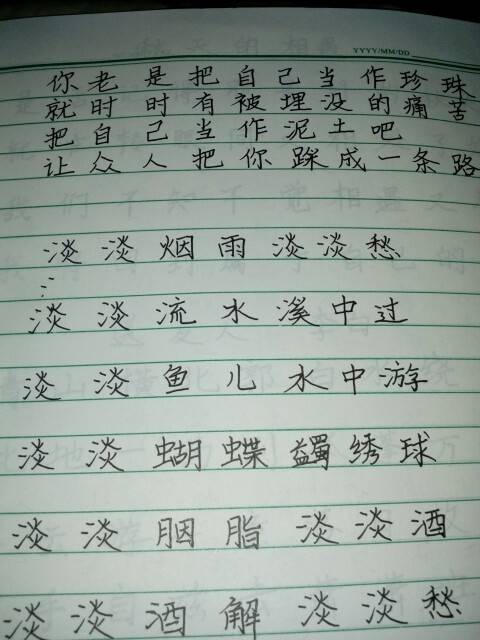 YYYY/MM/DD
你老是把自己当作珍珠
就时时有被埋没的痛苦
把自己当作泥土吧
让众人把你踩成一条路
淡淡烟雨淡淡愁
淡淡流水溪中过
淡淡鱼儿水中游
淡淡蝴蝶蠲绣球
淡淡胭脂淡淡酒
淡淡酒解淡淡愁